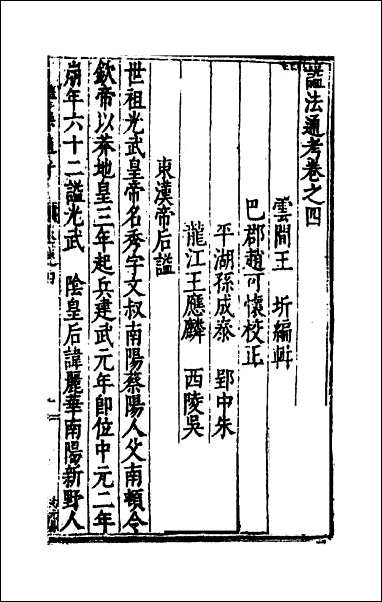 諡法通考卷之四
雲間王　圻編輯
巴郡趙可懷校正
平湖孫成泰　郢中朱
龍江王應麟　西陵吳
東漢帝后諡
世祖光武皇帝名秀字文叔南陽蔡陽人父南頓令
欽帝以莽地皇三年起兵建武元年卽位中元二年
崩年六十二諡光武　陰皇后諱麗華南陽新野人